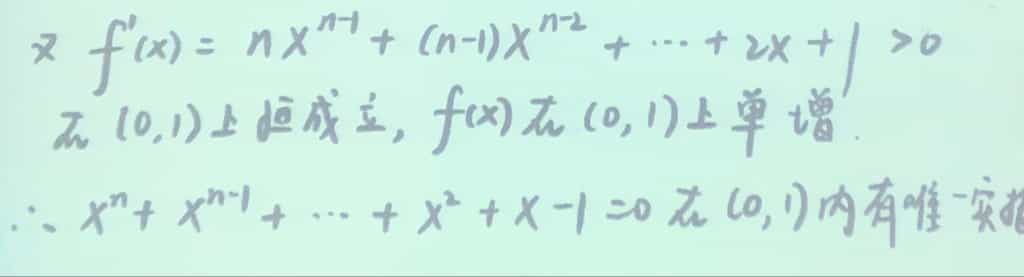 又 f'(x) = nx^{n-1} + (n-1)x^{n-2} + ⋯ + 2x + 1 > 0
在 (0,1) 上恒成立, f(x) 在 (0,1) 上单增.
∴ x^n + x^{n-1} + ⋯ + x^2 + x - 1 = 0 在 (0,1) 内有唯一实根